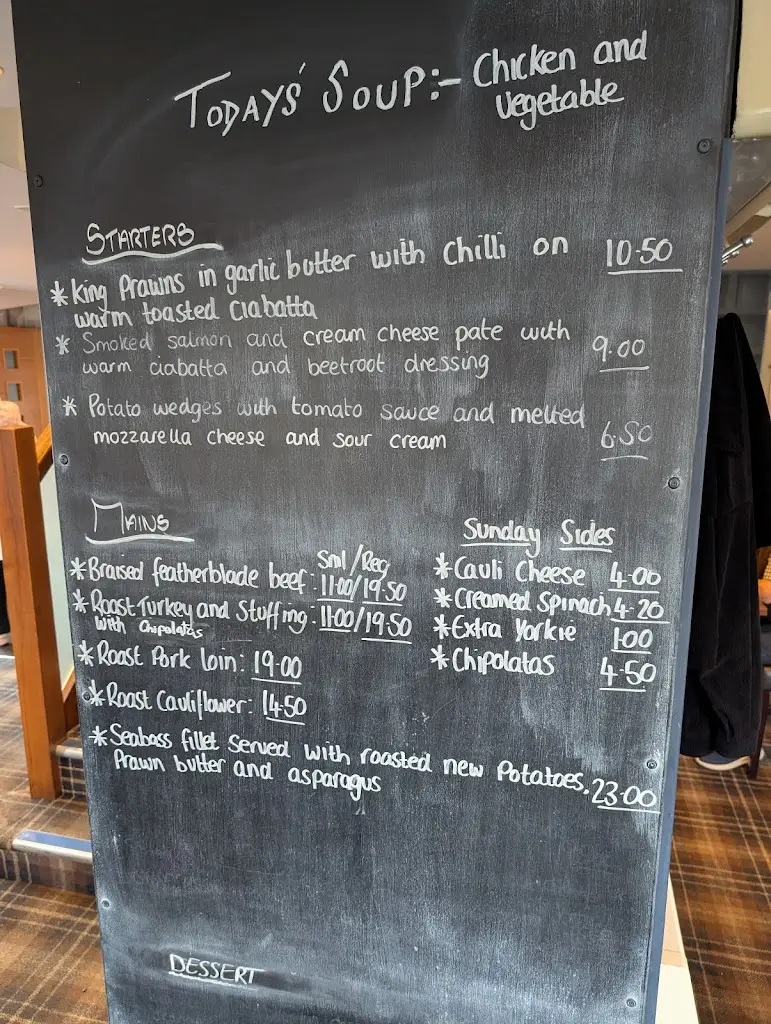 TODAYS' SOUP:- Chicken and
Vegetable
STARTERS
* King Prawns in garlic butter with chilli on 10.50
warm toasted Ciabatta
* Smoked salmon and cream cheese pate with 9.00
warm ciabatta and beetroot dressing
* Potato wedges with tomato sauce and melted
mozzarella cheese and sour cream 6.50
MAINS
Sml/Reg
* Braised featherblade beef: 11.00/19.50
* Roast Turkey and Stuffing: 11.00/19.50
With Chipolatas
* Roast Pork loin: 19.00
* Roast Cauliflower: 14.50
* Seabass fillet Served with roasted new Potatoes.
Prawn butter and asparagus 23.00
Sunday Sides
* Cauli Cheese 4.00
* Creamed Spinach 4.20
* Extra Yorkie 1.00
* Chipolatas 4.50
DESSERT